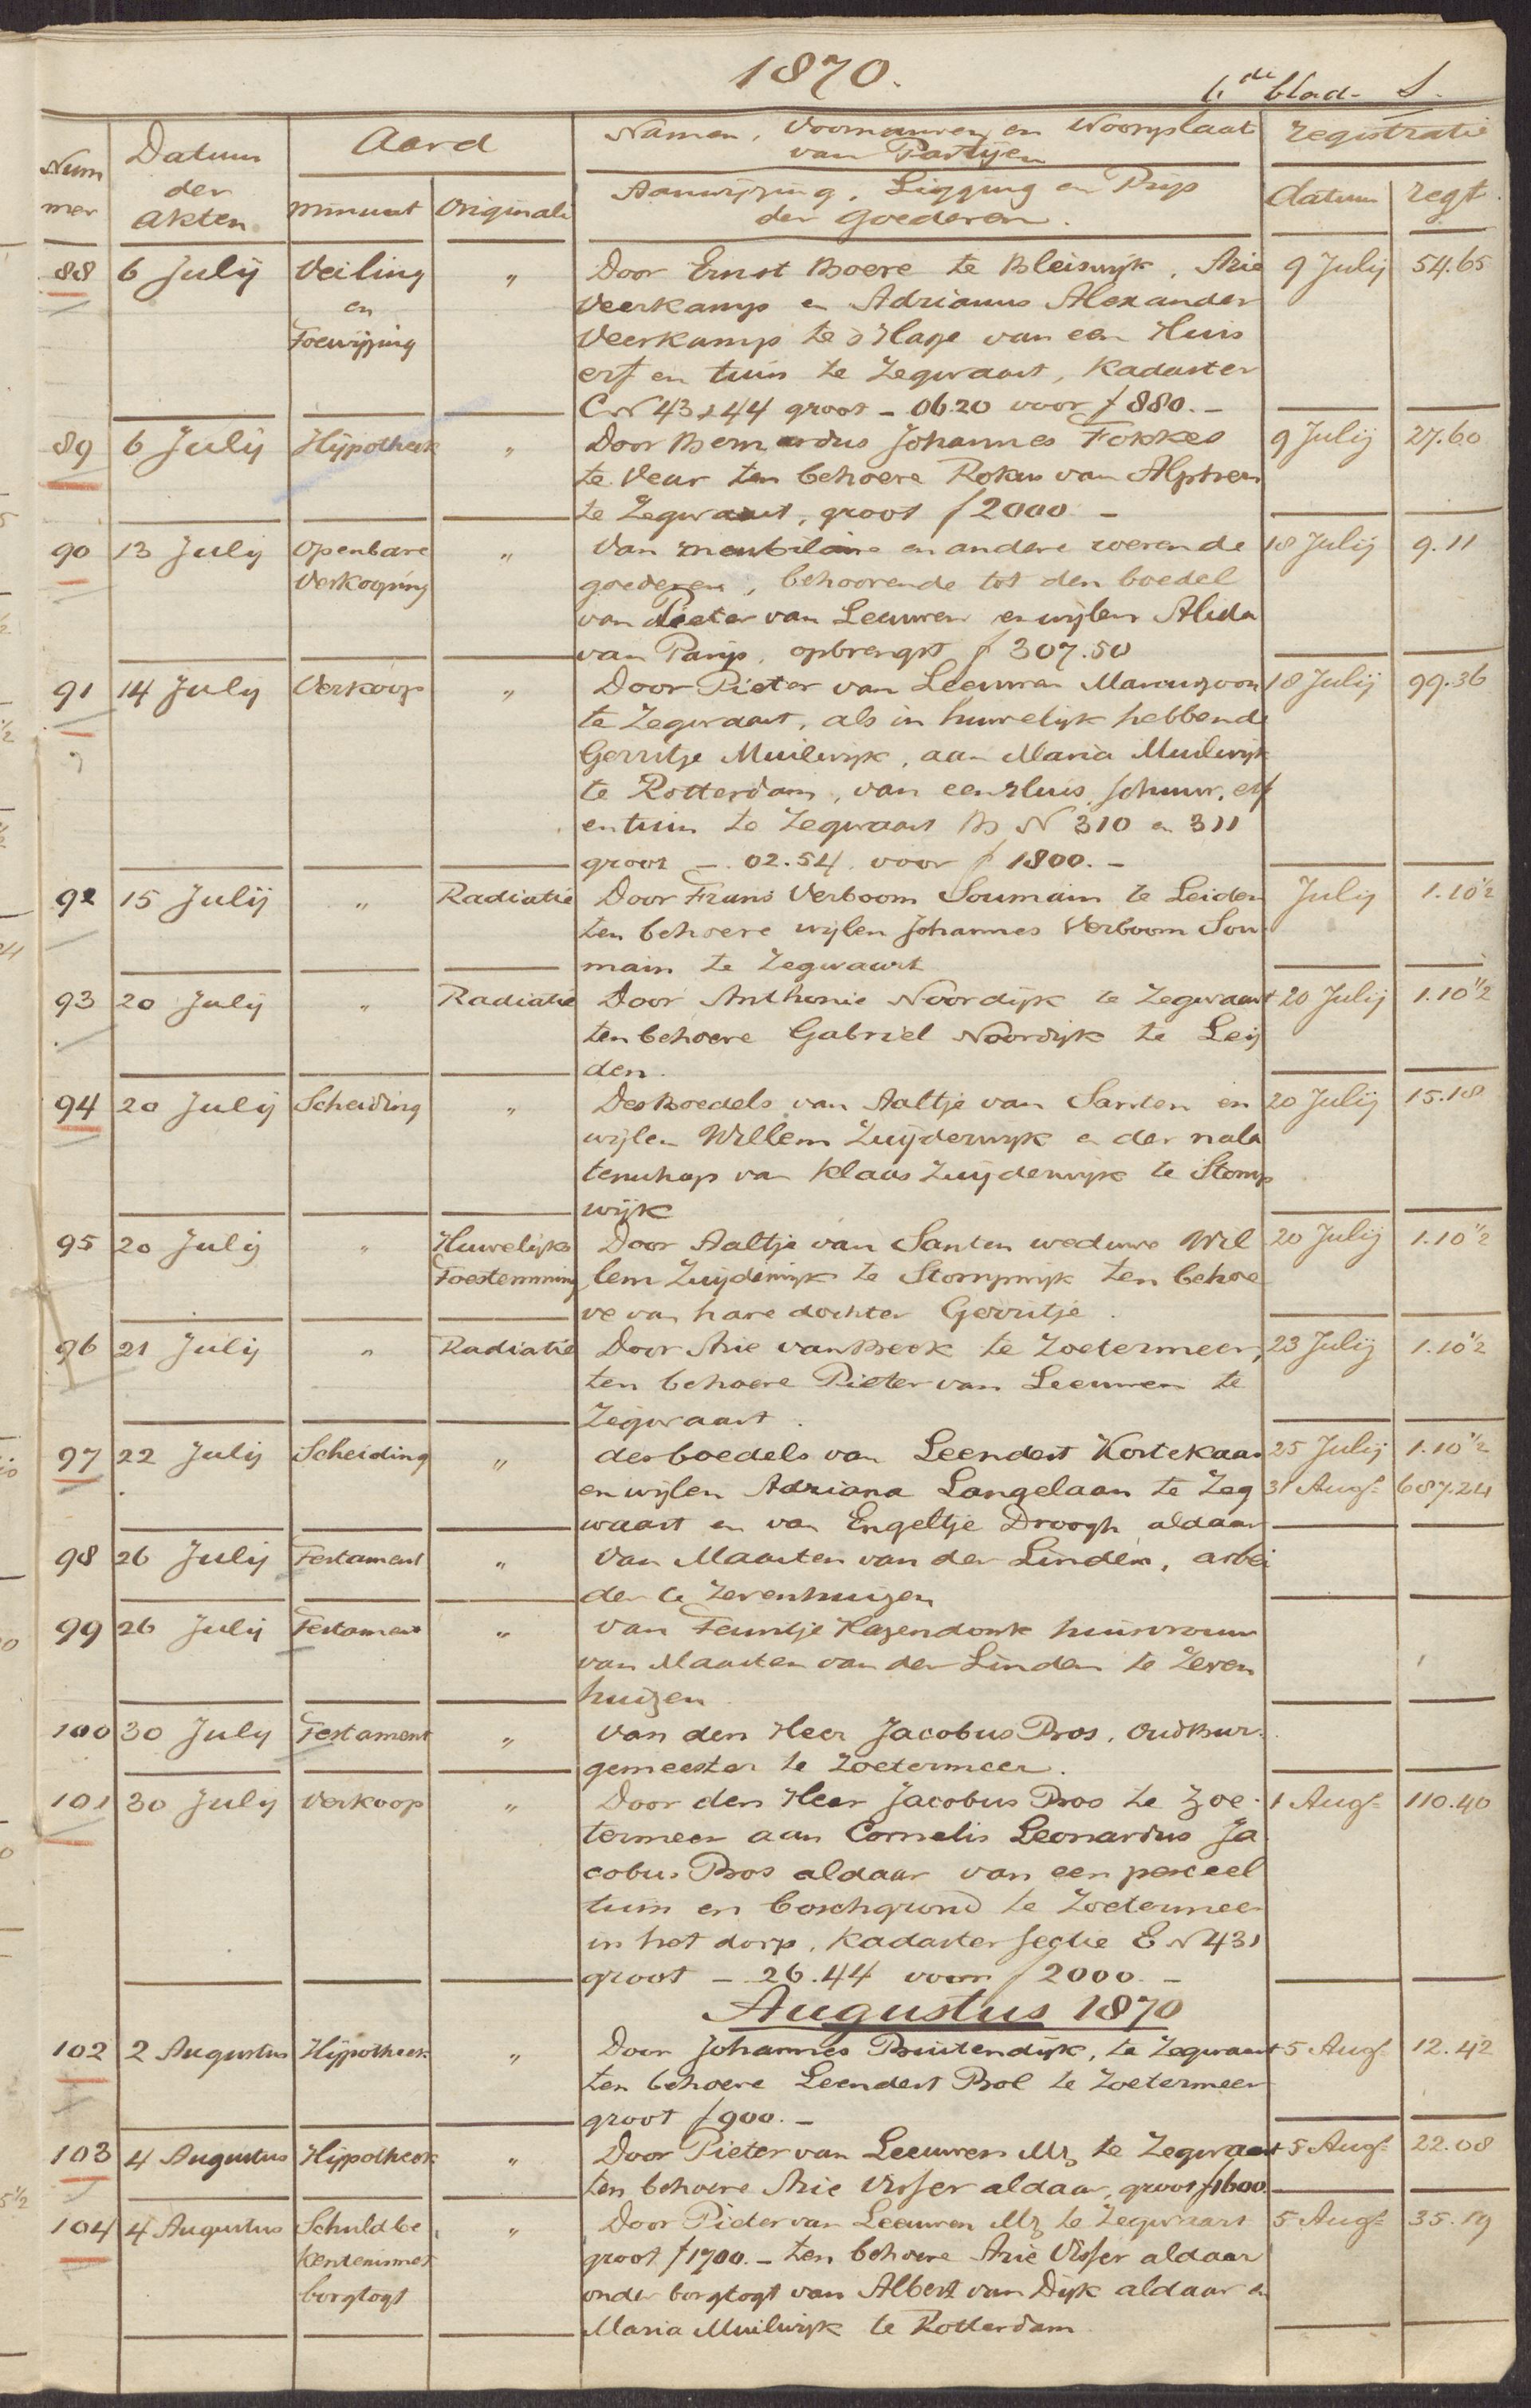 1870.
6de blad. S.
Nummer
Datum der akten
Aard
minuut
Originale
Namen, Voornamen en Woonplaats
van Partijen
Aanwijzing, Ligging en Prijs
der goederen.
registratie
datum
regt.
88 6 Julij Veiling „ Door Ernst Boere te Bleiswijk, Arie 9 Julij 54.65
en Veerkamp en Adrianus Alexander
Toewijzing Veerkamp te 's Hage van een Huis
erf en tuin te Zegwaart, Kadaster
C N 43 & 44 groot - 06.20 voor f 880.-
89 6 Julij Hijpotheek „ Door Bernardus Johannes Fokkes 9 Julij 27.60
te Veur ten behoeve Rokus van Alphen
te Zegwaart, groot f 2000 -
90 13 Julij Openbare „ Van meubilaire en andere roerende 18 Julij 9.11
Verkooping goederen, behoorende tot den boedel
van Pieter van Leeuwen en wijlen Alida
van Parijs, opbrengst f 307.50
91 14 Julij Verkoop „ Door Pieter van Leeuwen Maruszoon 18 Julij 99.36
te Zegwaart, als in huwelijk hebbende
Gerritje Muilwijk, aan Maria Muilwijk
te Rotterdam, van een Huis, schuur, erf
en tuin te Zegwaart B N 310 en 311
groot - 02.54 voor f 1800.-
92 15 Julij „ Radiatie Door Frans Verboom Soumain te Leiden Julij 1.10½
ten behoeve wijlen Johannes Verboom Sou
main te Zegwaart
93 20 Julij „ Radiatie Door Anthonie Noordijk te Zegwaart 20 Julij 1.10½
ten behoeve Gabriel Noordijk te Leij
den.
94 20 Julij Scheiding „ Des Boedels van Aaltje van Santen en 20 Julij 15.18
wijlen Willem Zuijderwijk en der nala
tenschap van Klaas Zuijderwijk te Stomp
wijk
95 20 Julij „ Huwelijks Door Aaltje van Santen weduwe Wil 20 Julij 1.10½
Toestemming lem Zuijderwijk te Stompwijk ten behoe
ve van hare dochter Gerritje.
96 21 Julij „ Radiatie Door Arie van Beek te Zoetermeer, 23 Julij 1.10½
ten behoeve Pieter van Leeuwen te
Zegwaart.
97 22 Julij Scheiding „ des boedels van Leendert Kortekaas 25 Julij 1.10½
en wijlen Adriana Langelaan te Zeg 31 Augs 687.24
waart en van Engeltje Droogh aldaar
98 26 Julij Testament „ Van Maarten van der Linden, arbei
der te Zevenhuizen
99 26 Julij Testament „ Van Teuntje Hazendonk huisvrouw
van Maarten van der Linden te Zeven
huizen
100 30 July Testament „ Van den Heer Jacobus Bos, Oud Bur-
gemeester te Zoetermeer.
101 30 July Verkoop „ Door den Heer Jacobus Bos te Zoe- 1 Augs 110.40
termeer aan Cornelis Leonardus Ja
cobus Bos aldaar van een perceel
tuin en boschgrond te Zoetermeer
in het dorp, Kadaster sectie E N 431
groot - 26.44 voor f 2000.-
Augustus 1870
102 2 Augustus Hijpotheek „ Door Johannes Buitendijk, te Zegwaart 5 Augs 12.42
ten behoeve Leendert Bol te Zoetermeer
groot f 900.-
103 4 Augustus Hijpotheek „ Door Pieter van Leeuwen Mz te Zegwaart 5 Augs 22.08
ten behoeve Arie Visser aldaar, groot f 1600
104 4 Augustus Schuldbe „ Door Pieter van Leeuwen Mz te Zegwaart 5 Augs 35.19
kentenis met groot f 1700.- ten behoeve Arie Visser aldaar
borgtogt onder borgtogt van Albert van Dijk aldaar en
Maria Muilwijk te Rotterdam